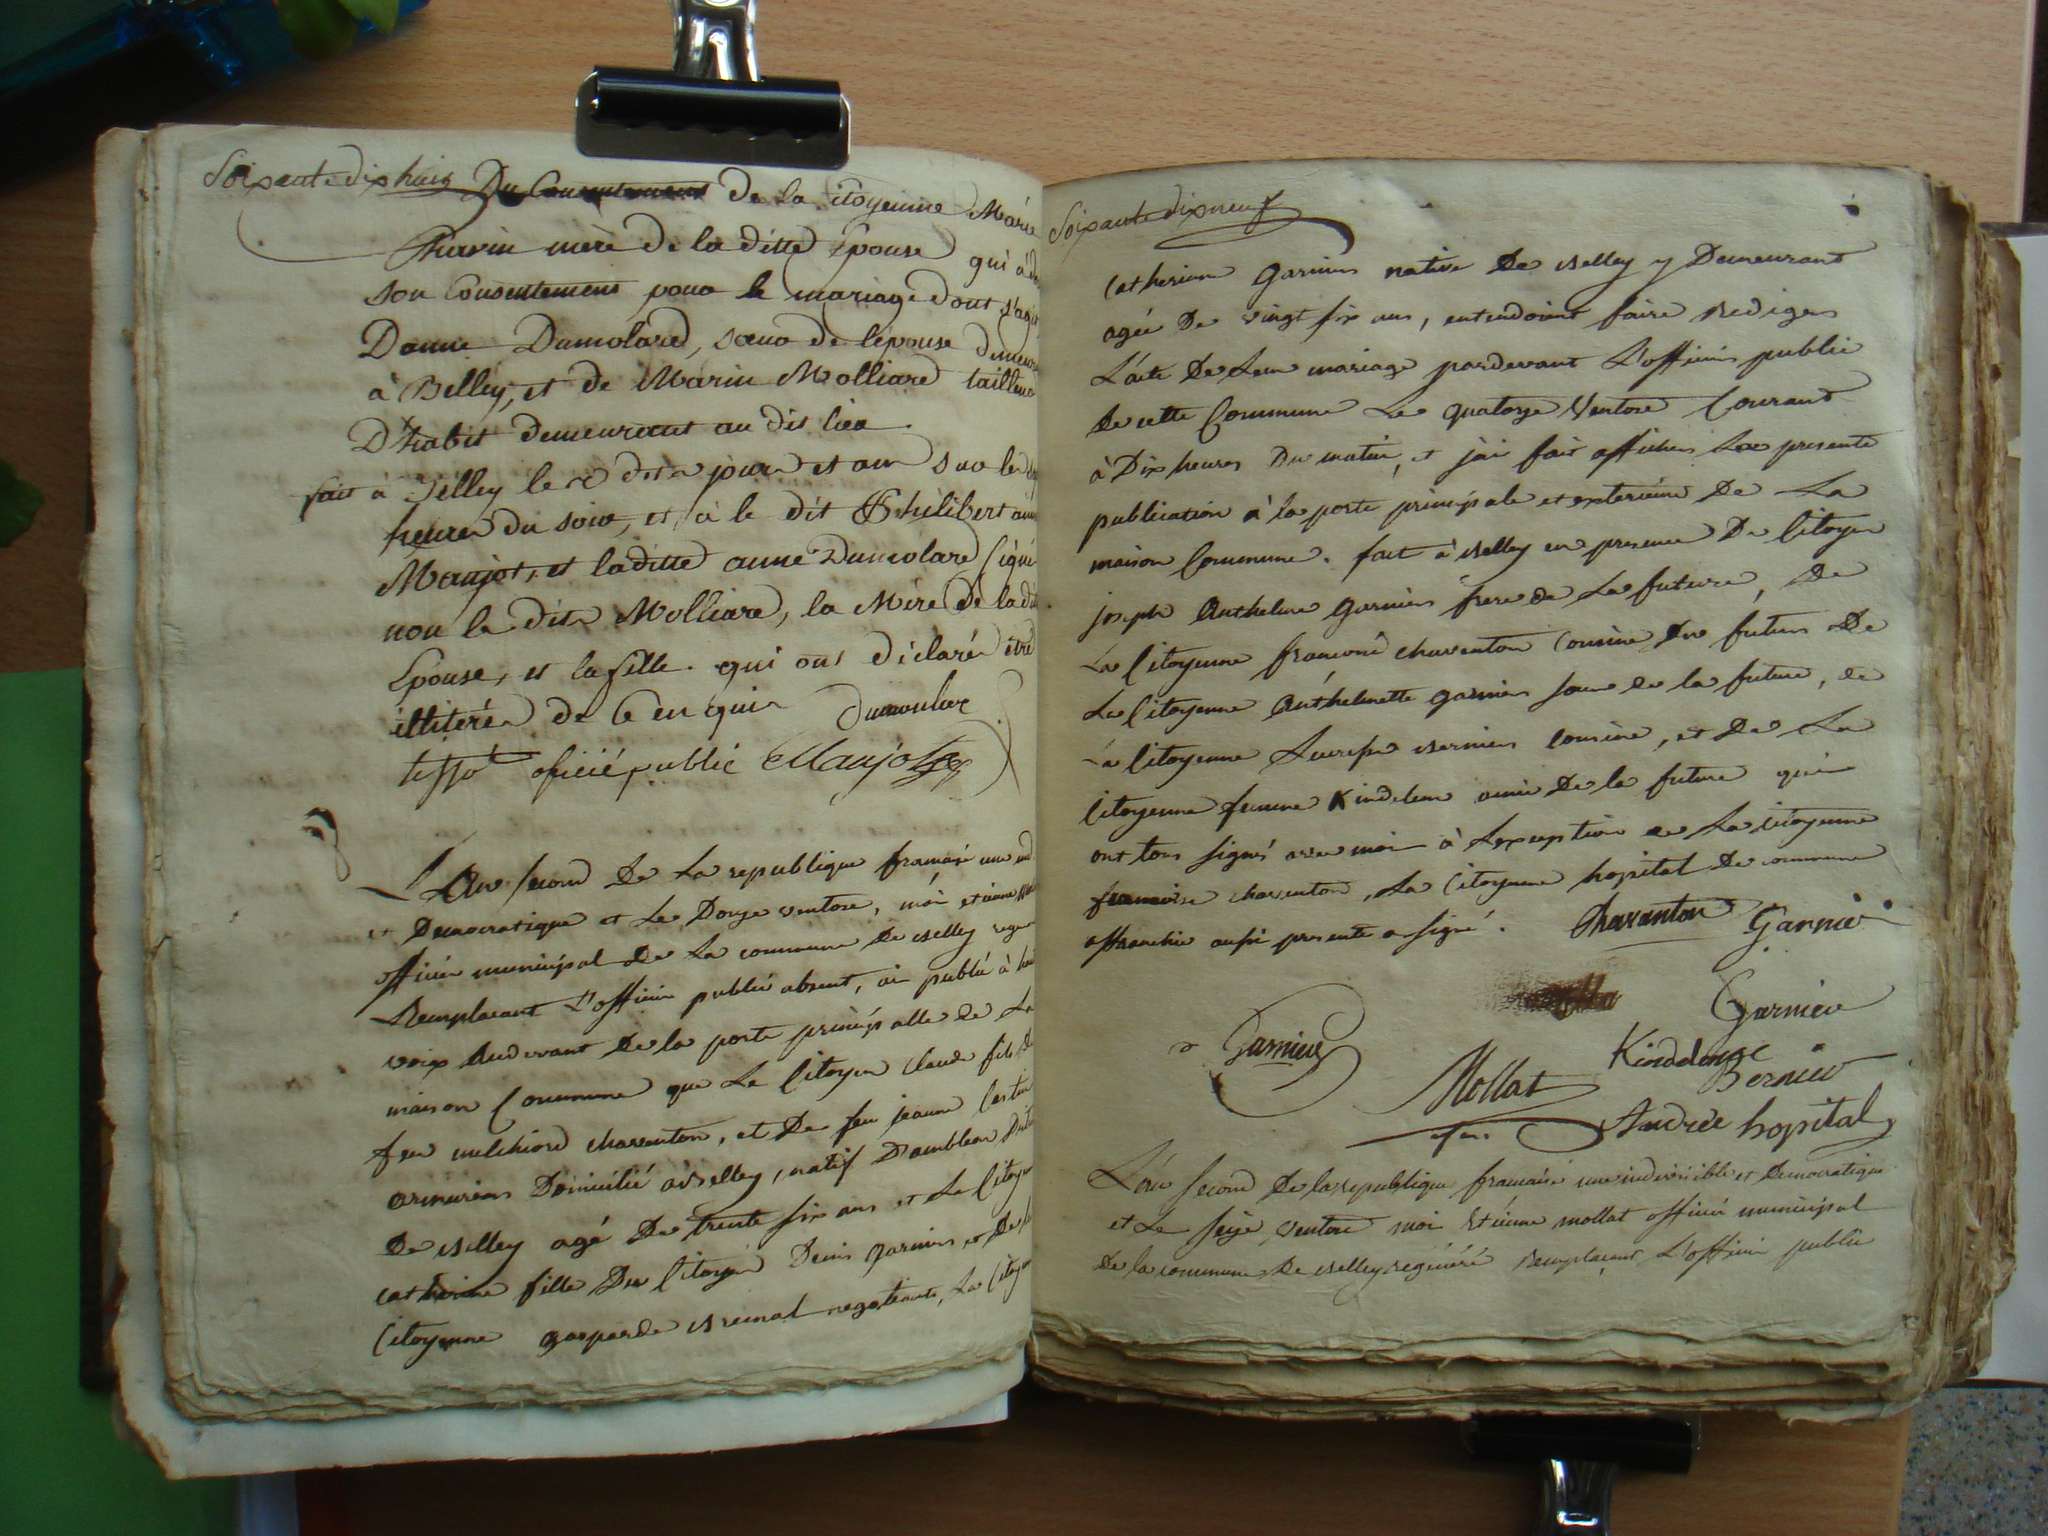 Soixante dix huit Du Consentement de la citoyenne Marie
mere de la ditte Epouse qui a
son Consentement pour le mariage dont s'agit
Danne Dumolard, sœur de lepouse
à Belley, et de Marin Molliard tailleur
D'habit demeurant au dit lieu
fait à Belley le dit jour et an sur les
heures du soir, et à le dit Philibert
Maujot, et laditte anne Dumolard signé
non le dit Molliard, la Mere de la
Epouse, et la fille. qui ont déclaré être
illitéré de ce enquis Dumoular
officié public Maujot
L'An second De La republique francaise une
et Democratique et Le Douze ventose, moi etienne
officier municipal De La commune De Belley
Remplacant L'officier public absent, ai publié à
voix audevant De la porte principalle de La
maison Commune que Le Citoyen Claude fils
feu melchiord charenton, et De feu jeanne
armurier Domicilié à Belley, natif D'ambleon
De Belley agé De trente six ans et La Citoyenne
catherine fille Du Citoyen Denis garnier et De
Citoyenne gasparde negotiants, La Citoyenne
Soixante dix neuf
Catherine garnier native De Belley y Demeurant
agée De vingt six ans, entendoient faire Rediger
L'acte De Leur mariage pardevant L'officier public
De cette Commune Le quatorze Ventose Courant
à Dix heures Du matin, et j'ai fait afficher La presente
publication à la porte principale et exterieure De La
maison Commune. fait à Belley en presence De Citoyen
joseph Anthelme garnier frere de La future, De
La Citoyenne francoise charenton Cousine Du futur De
La Citoyenne Anthelmette garnier soeur de la future, de
La Citoyenne bernier cousine, et De La
Citoyenne femme Kindelem amie De la future qui
ont tous signés avec moi à L'exception de La Citoyenne
francoise charenton, La Citoyenne hopital De commune
affranchie aussi presente a signé. Charanton Garnié
Garnier
Garnier Kindelenge
Mollat Bernier
Andrée hopital
L'an second De la republique francaise une indivisible et Democratique
et Le seize ventose moi Etienne mollat officier municipal
De la commune De Belley regénéré Remplaçant L'officier public